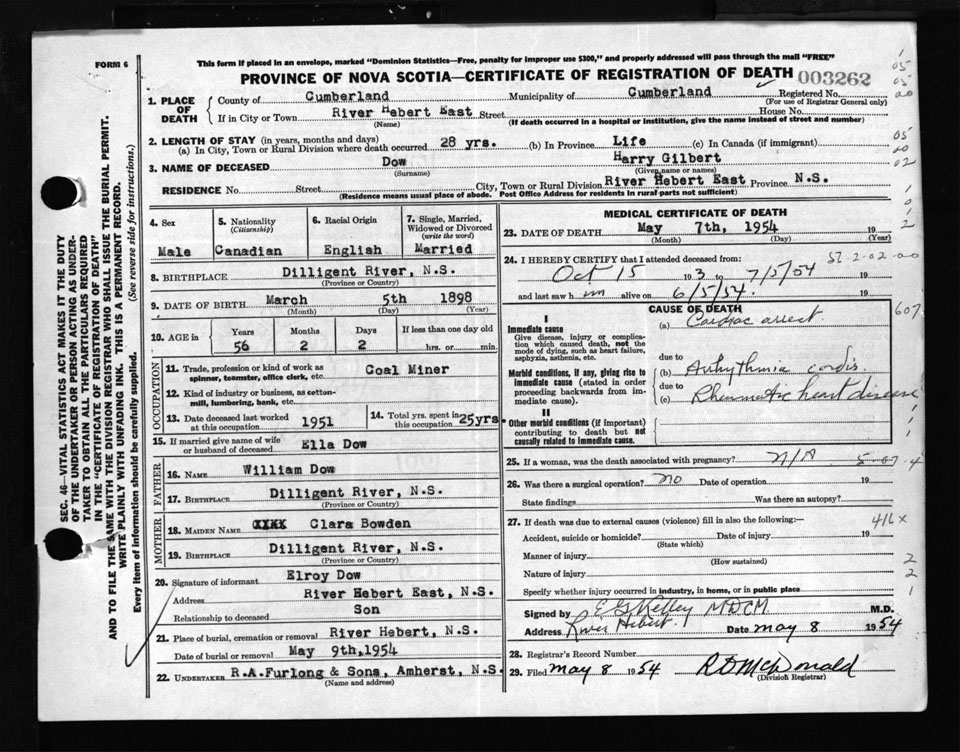 FORM 6
This form if placed in an envelope, marked "Dominion Statistics—Free, penalty for improper use $300," and properly addressed will pass through the mail "FREE"
PROVINCE OF NOVA SCOTIA—CERTIFICATE OF REGISTRATION OF DEATH 003262
SEC. 46—VITAL STATISTICS ACT MAKES IT THE DUTY
OF THE UNDERTAKER OR PERSON ACTING AS UNDER-
TAKER TO OBTAIN ALL THE PARTICULARS REQUIRED
IN THE "CERTIFICATE OF REGISTRATION OF DEATH"
AND TO FILE THE SAME WITH THE DIVISION REGISTRAR WHO SHALL ISSUE THE BURIAL PERMIT.
WRITE PLAINLY WITH UNFADING INK. THIS IS A PERMANENT RECORD.
Every item of information should be carefully supplied. (See reverse side for instructions.)
1. PLACE OF DEATH
County of Cumberland Municipality of Cumberland Registered No.
(For use of Registrar General only)
If in City or Town River Hebert East Street House No.
(Name) (If death occurred in a hospital or institution, give the name instead of street and number)
2. LENGTH OF STAY (in years, months and days)
(a) In City, Town or Rural Division where death occurred 28 yrs. (b) In Province Life (c) In Canada (if immigrant)
3. NAME OF DECEASED Dow Harry Gilbert
(Surname) (Given name or names)
RESIDENCE No. Street City, Town or Rural Division River Hebert East Province N.S.
(Residence means usual place of abode. Post Office Address for residents in rural parts not sufficient)
4. Sex
Male
5. Nationality
(Citizenship)
Canadian
6. Racial Origin
English
7. Single, Married, Widowed or Divorced
(write the word)
Married
8. BIRTHPLACE Dilligent River, N.S.
(Province or Country)
9. DATE OF BIRTH March 5th 1898
(Month) (Day) (Year)
10. AGE in
Years Months Days If less than one day old
56 2 2 hrs. or min.
OCCUPATION
11. Trade, profession or kind of work as
spinner, teamster, office clerk, etc. Coal Miner
12. Kind of industry or business, as cotton-
mill, lumbering, bank, etc.
13. Date deceased last worked
at this occupation 1951
14. Total yrs. spent in
this occupation 25yrs.
15. If married give name of wife
or husband of deceased Ella Dow
FATHER
16. NAME William Dow
17. BIRTHPLACE Dilligent River, N.S.
(Province or Country)
MOTHER
18. MAIDEN NAME XXXX Clara Bowden
19. BIRTHPLACE Dilligent River, N.S.
(Province or Country)
20. Signature of informant Elroy Dow
Address River Hebert East, N.S.
Relationship to deceased Son
21. Place of burial, cremation or removal River Hebert, N.S.
Date of burial or removal May 9th, 1954
22. UNDERTAKER R.A.Furlong & Sons, Amherst, N.S.
(Name and address)
MEDICAL CERTIFICATE OF DEATH
23. DATE OF DEATH May 7th, 1954 19
(Month) (Day) (Year)
24. I HEREBY CERTIFY that I attended deceased from:
Oct 15 193 to 7/5/54
and last saw him alive on 6/5/54. 19
CAUSE OF DEATH
I
Immediate cause
Give disease, injury or complica-
tion which caused death, not the
mode of dying, such as heart failure,
asphyxia, asthenia, etc.
(a) Cardiac arrest.
due to
Morbid conditions, if any, giving rise to
immediate cause (stated in order
proceeding backwards from im-
mediate cause).
(b) Arhythmia cordis.
due to
(c) Rheumatic heart disease
II
Other morbid conditions (if important)
contributing to death but not
causally related to immediate cause.
25. If a woman, was the death associated with pregnancy? N/A
26. Was there a surgical operation? no Date of operation 19
State findings Was there an autopsy?
27. If death was due to external causes (violence) fill in also the following:—
416x
Accident, suicide or homicide? Date of injury 19
(State which)
Manner of injury
(How sustained)
Nature of injury
Specify whether injury occurred in industry, in home, or in public place
Signed by E G Kelley MDCM M.D.
Address River Hebert. Date May 8 1954
28. Registrar's Record Number
29. Filed May 8 1954 R D McDonald
(Division Registrar)